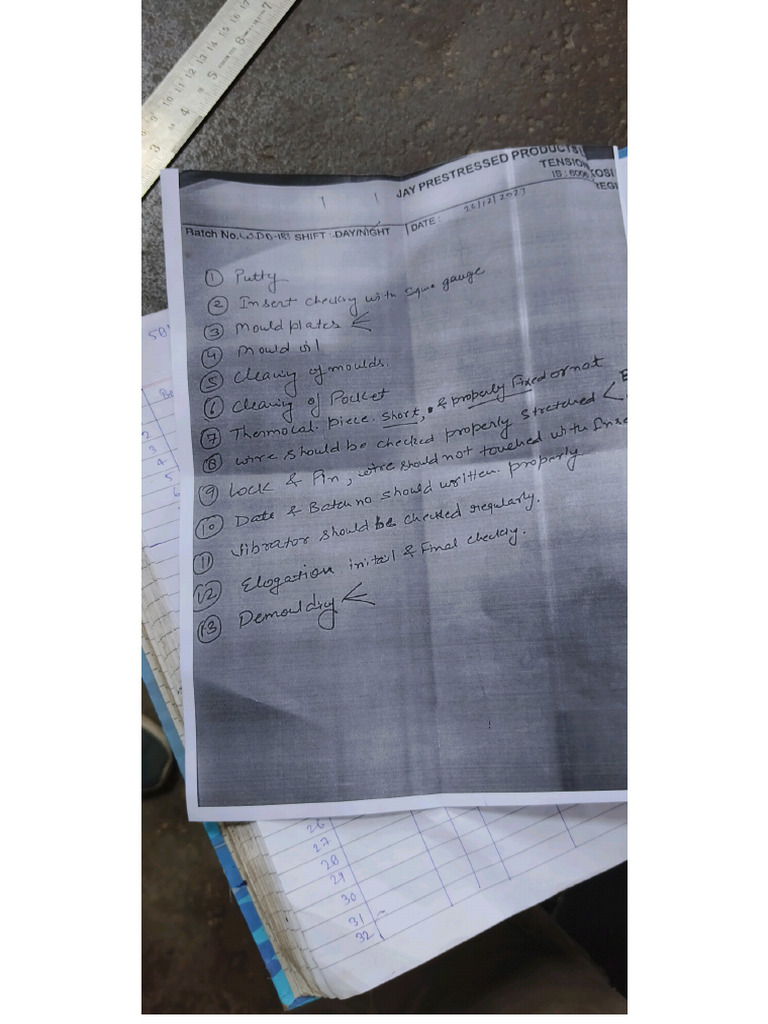 JAY PRESTRESSED PRODUCTS
TENSION
IS : 6006
KOSI
REGI
Batch No. SHIFT : DAY/NIGHT DATE : 26/12/2023
① Putty
② Insert checking with gauge
③ Mould plates <
④ Mould oil
⑤ Cleaning of moulds.
⑥ Cleaning of Pocket
⑦ Thermocal. piece. short, & properly Fixed or not
⑧ wire should be checked properly stretched < E
⑨ Lock & Pin, wire should not touched with Inse
⑩ Date & Batch no should written. properly
⑪ Vibrator should be checked regularly.
⑫ Elogation initail & Final checking.
⑬ Demoulding <
501
Ba
2
3
4
5
6
26
27
28
29
30
31
32